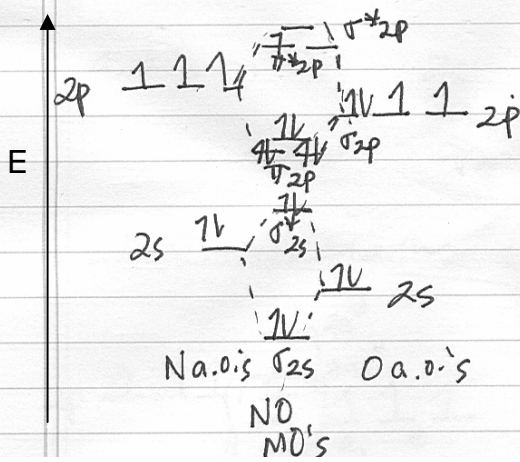 σ*2p
π*2p
2p 1 1 1
1L 1 1 2p
E
1L σ2p
1L 1L
π2p
1L
σ*2s
2s 1L
1L 2s
1L
N a.o.'s σ2s O a.o.'s
NO
MO's